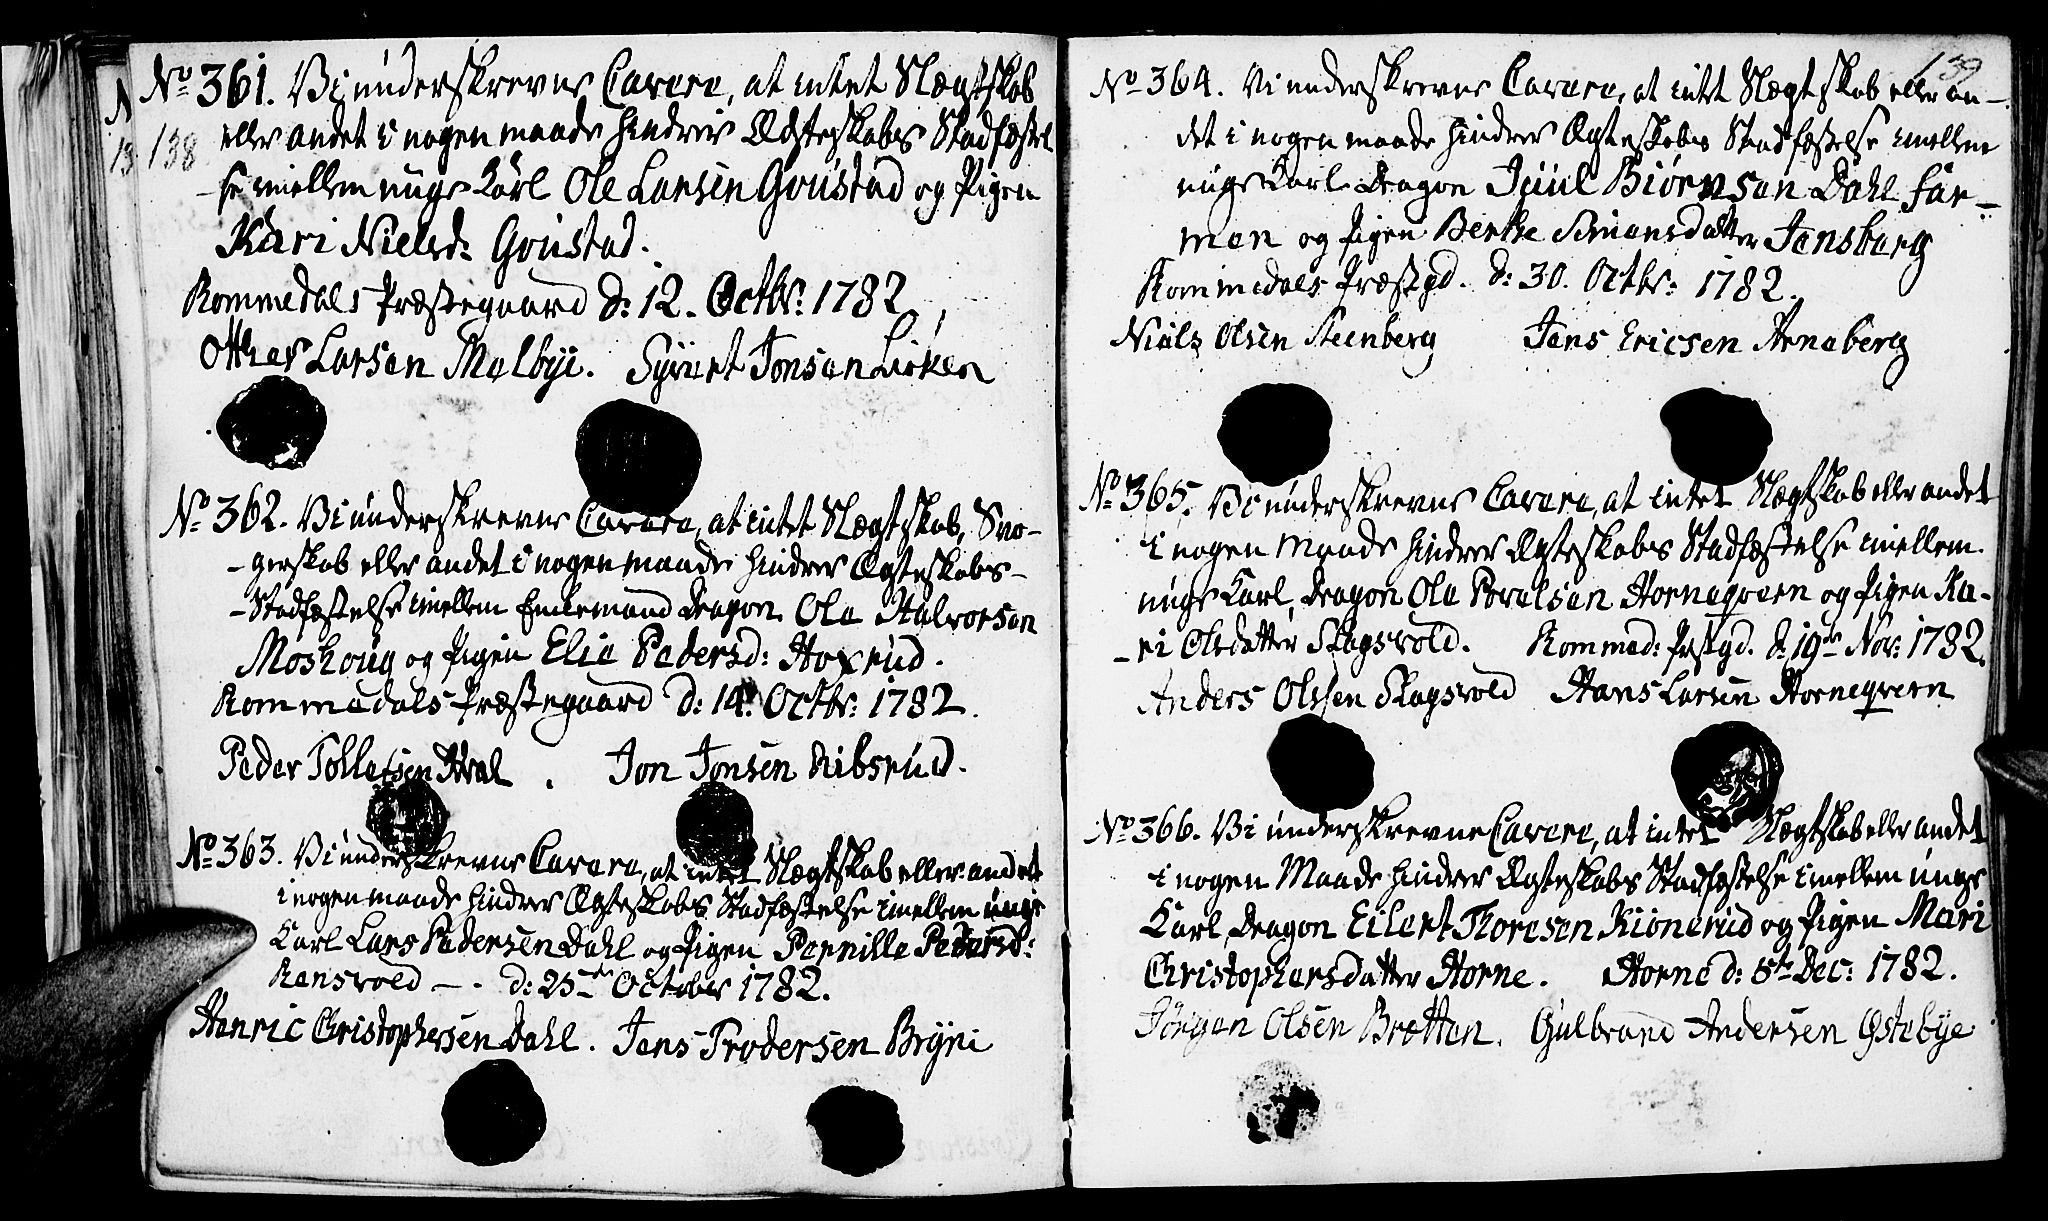 138
No 361. Vi underskrevne Cavere, at intet Slægtskab
eller andet i nogen maade hindrer Ægteskabs Stadfæstel
se imellem unge Karl Ole Larsen Goustad og Pigen
Kari Nielsd: Goustad.
Rommedals Præstegaard d: 12. Octbr: 1782.
Otther Larsen Melbye. Syvert Jonsen Lieken
No 362. Vi underskrevne Cavere, at intet Slægtskab, Svo-
-gerskab eller andet i nogen maade hindrer Ægteskabs-
-Stadfæstelse imellem Enkemand Dragon Ole Halvorsen
Moshoug og Pigen Elie Pedersd: Hoxrud.
Rommedals Præstegaard d: 14. Octbr: 1782.
Peder Tollefsen Hval. Jon Jonsen Ribsrud.
No 363. Vi underskrevne Cavere, at intet Slægtskab eller andet
i nogen maade hindrer Ægteskabs Stadfæstelse imellem unge
Karl Lars Pedersen Dahl og Pigen Pernille Pedersd:
Rensvold - . d: 25de October 1782.
Henric Christophersen Dahl. Jens Trodersen Bryni
139
No 364. Vi underskrevne Cavere, at intet Slægtskab eller an-
det i nogen maade hindrer Ægteskabs Stadfæstelse imellem
unge Karl Dragon Juul Biørnsen Dahl Før-
men og Pigen Berthe Simensdatter Jensberg
Rommedals Præstgd. d: 30. Octbr: 1782.
Niels Olsen Steenberg Jens Ericsen Arneberg
No 365. Vi underskrevne Cavere, at intet Slægtskab eller andet
i nogen Maade hindrer Ægteskabs Stadfæstelse imellem
unge Karl, Dragon Ole Povelsen Horneqvern og Pigen Ka-
-ri Olsdatter Skagsvold. Rommed: Prstgd. d: 19de Nov: 1782.
Anders Olssen Skagsvold Hans Larsen Horneqvern
No 366. Vi underskrevne Cavere, at intet Slægtskab eller andet
i nogen Maade hindrer Ægteskabs Stadfæstelse imellem unge
Karl, Dragon Eilert Thoresen Kionerud og Pigen Mari
Christophersdatter Horne. Horne d: 5te Dec: 1782.
Jörgen Olsen Bretten. Gulbrand Andersen Østebye